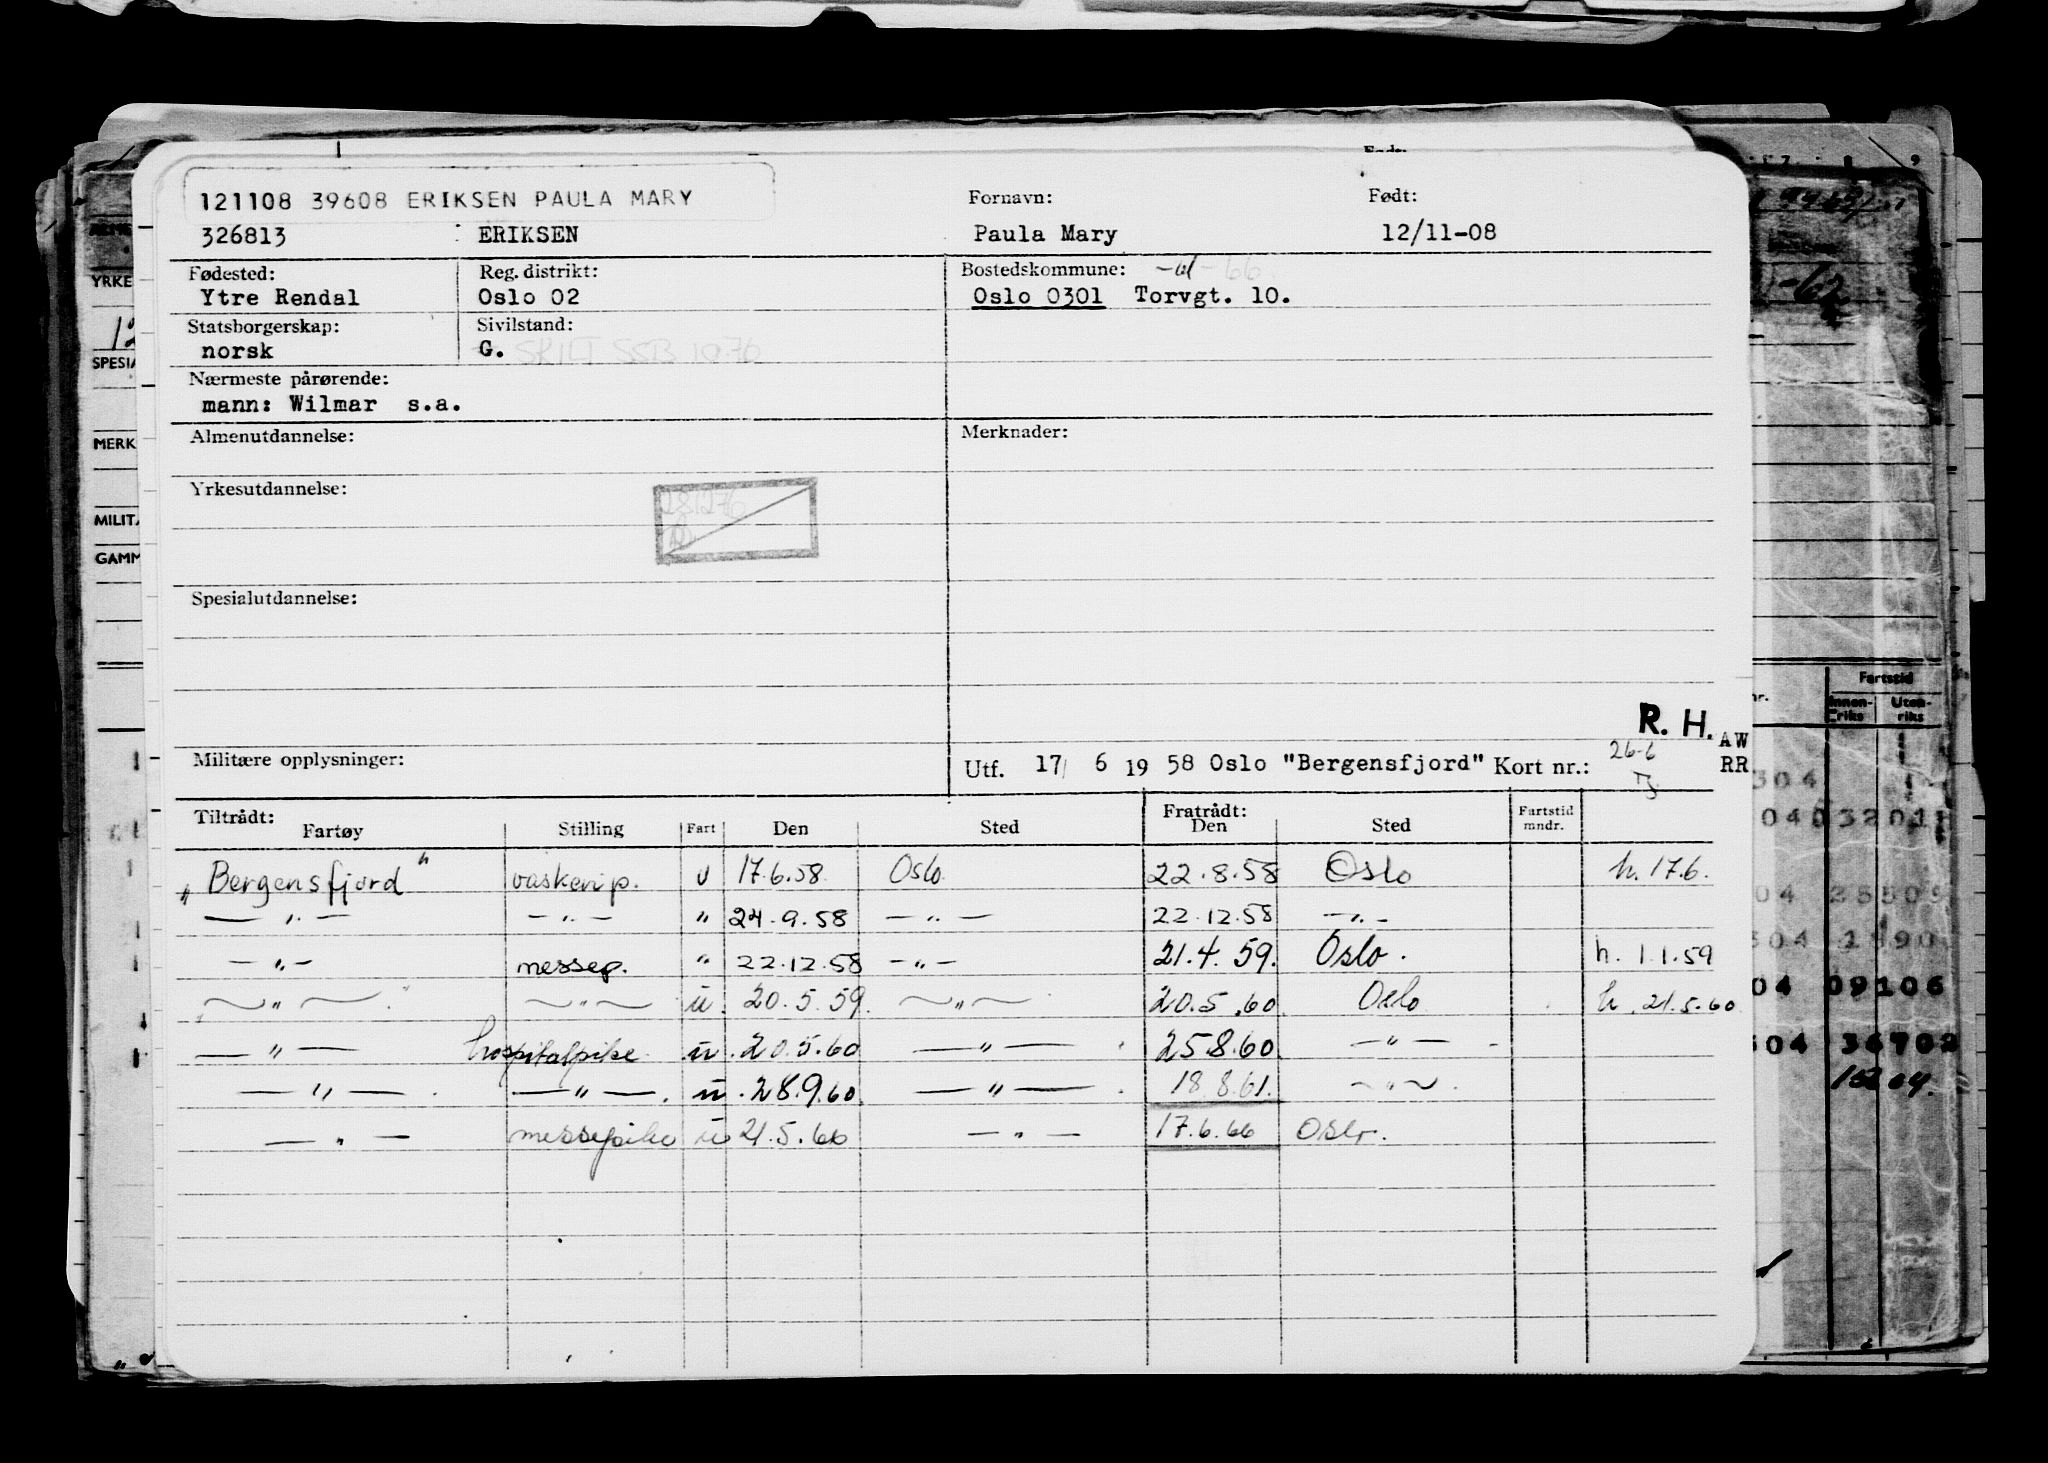 121108 39608 ERIKSEN PAULA MARY
Fornavn: Født:
326813 ERIKSEN Paula Mary 12/11-08
Fødested: Reg. distrikt: Bostedskommune: -66
Ytre Rendal Oslo 02 Oslo 0301 Torvgt. 10.
Statsborgerskap: Sivilstand:
norsk G. SKILT SSB 10.76
Nærmeste pårørende:
mann: Wilmar s.a.
Almenutdannelse: Merknader:
Yrkesutdannelse:
281276
Spesialutdannelse:
R. H.
AW
RR
26-6
Militære opplysninger: Utf. 17/ 6 19 58 Oslo "Bergensfjord" Kort nr.:
Tiltrådt: Fratrådt: Fartstid
Fartøy Stilling Fart Den Sted Den Sted mndr.
„Bergensfjord" vaskerip. u 17.6.58 Oslo 22.8.58 Oslo h. 17.6.
— " — — " — " 24.9.58 — " — 22.12.58 — " —
— " — messep. " 22.12.58 — " — 21.4.59. Oslo. h. 1.1.59
— " — — " — u. 20.5.59. — " — 20.5.60 Oslo h. 21.5.60
— " — hospitalpike u. 20.5.60 — " — 25.8.60 — " —
— " — — " — u. 28.9.60. — " — 18.8.61. — " —
— " — messepike u 21.5.66 — " — 17.6.66 Oslo.
YRKE
SPESIA
MERK
MILITÆ
GAMM
Fartstid
Innen-
riks
Uten-
riks
09106
36702